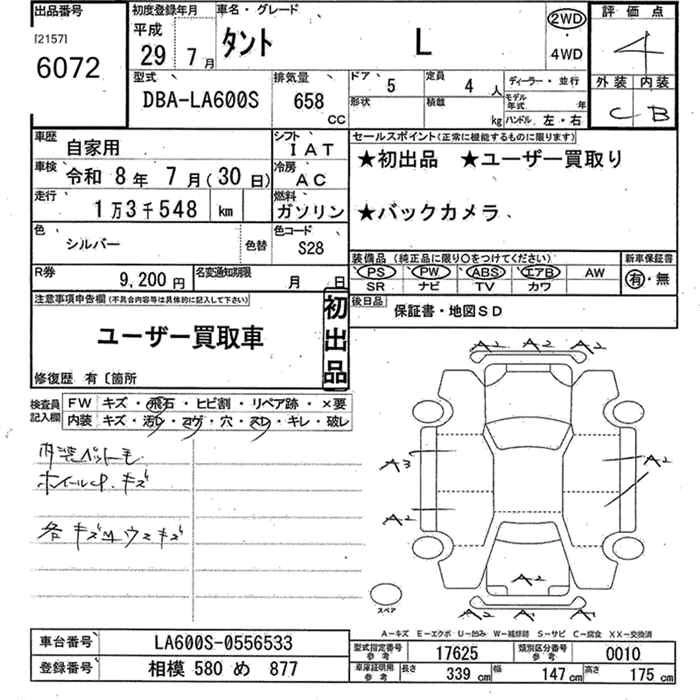 出品番号
[2157]
6072
初度登録年月
平成
29 7月
車名・グレード
タント L
2WD
・
4WD
評価点
4
外装 内装
C B
型式
DBA-LA600S
排気量
658
CC
ドア 5
定員 4 人
形状
積載 kg
ディーラー・並行
モデル年式 年
ハンドル 左・右
車歴 自家用
車検 令和 8年 7月(30日)
走行 1万3千548 km
色 シルバー 色替
シフト IAT
冷房 AC
燃料 ガソリン
色コード S28
R券 9,200円
名変通知期限 月 日
セールスポイント(正常に機能するものに限ります)
★初出品 ★ユーザー買取り
★バックカメラ
装備品 (純正品に限り○をつけてください)
PS PW ABS エアB AW
SR ナビ TV カワ
新車保証書
有・無
後日品
保証書・地図SD
注意事項申告欄(不具合内容等は具体的に記入して下さい)
ユーザー買取車
初出品
修復歴 有〔箇所
検査員記入欄
FW キズ・飛石・ヒビ割・リペア跡・×要
内装 キズ・汚レ・コゲ・穴・スレ・キレ・破レ
内装ペット毛
ホイールCP.キズ
各キズ ウスキズ
A2 A2 A2
A3 A2
A2
A2
A2 A1 A1
スペア
A-キズ E-エクボ U-凹み W-補修跡 S-サビ C-腐食 XX-交換済
車台番号 LA600S-0556533
登録番号 相模 580 め 877
型式指定番号 参考 17625
類別区分番号 参考 0010
車庫証明用 参考 長さ 339 cm 幅 147 cm 高さ 175 cm